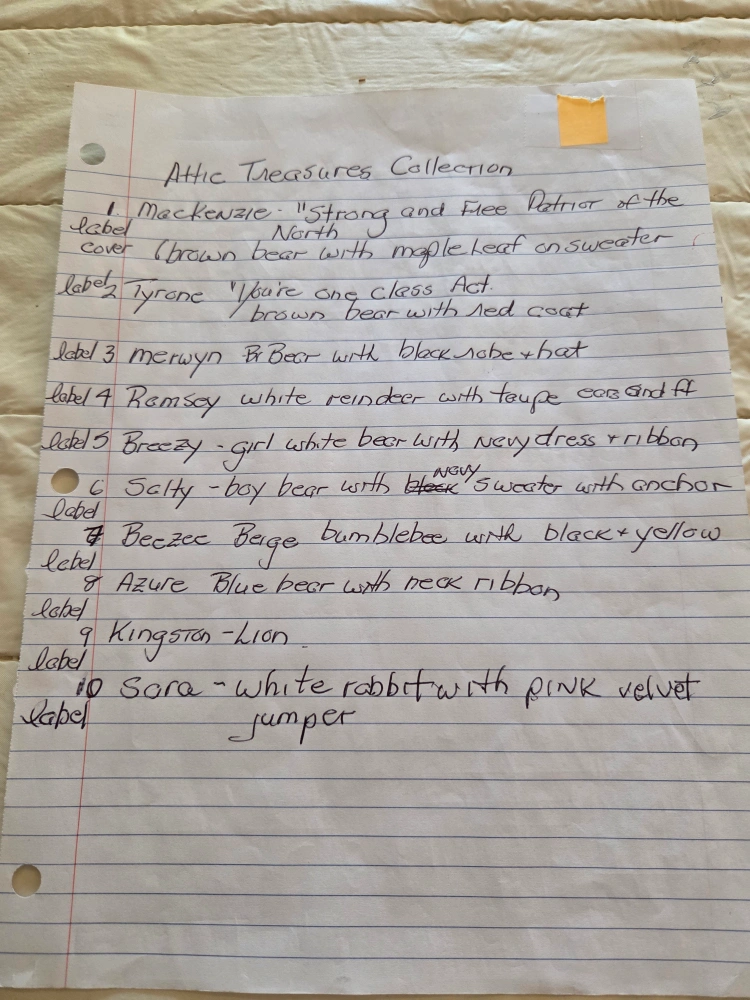 Attic Treasures Collection
1. Mackenzie - "Strong and Free Patriot of the
label North
cover (brown bear with maple leaf on sweater
label 2 Tyrone "You're one class Act.
brown bear with red coat
label 3 merwyn Br Bear with black robe + hat
label 4 Ramsey white reindeer with taupe ears and ft
label 5 Breezy - girl white bear with Navy dress + ribbon
6 Salty - boy bear with black Navy sweater with anchor
label
7 Beezee Beige bumblebee with black + yellow
label
8 Azure Blue bear with neck ribbon
label
9 Kingston - Lion
label
10 Sara - white rabbit with pink velvet
label jumper